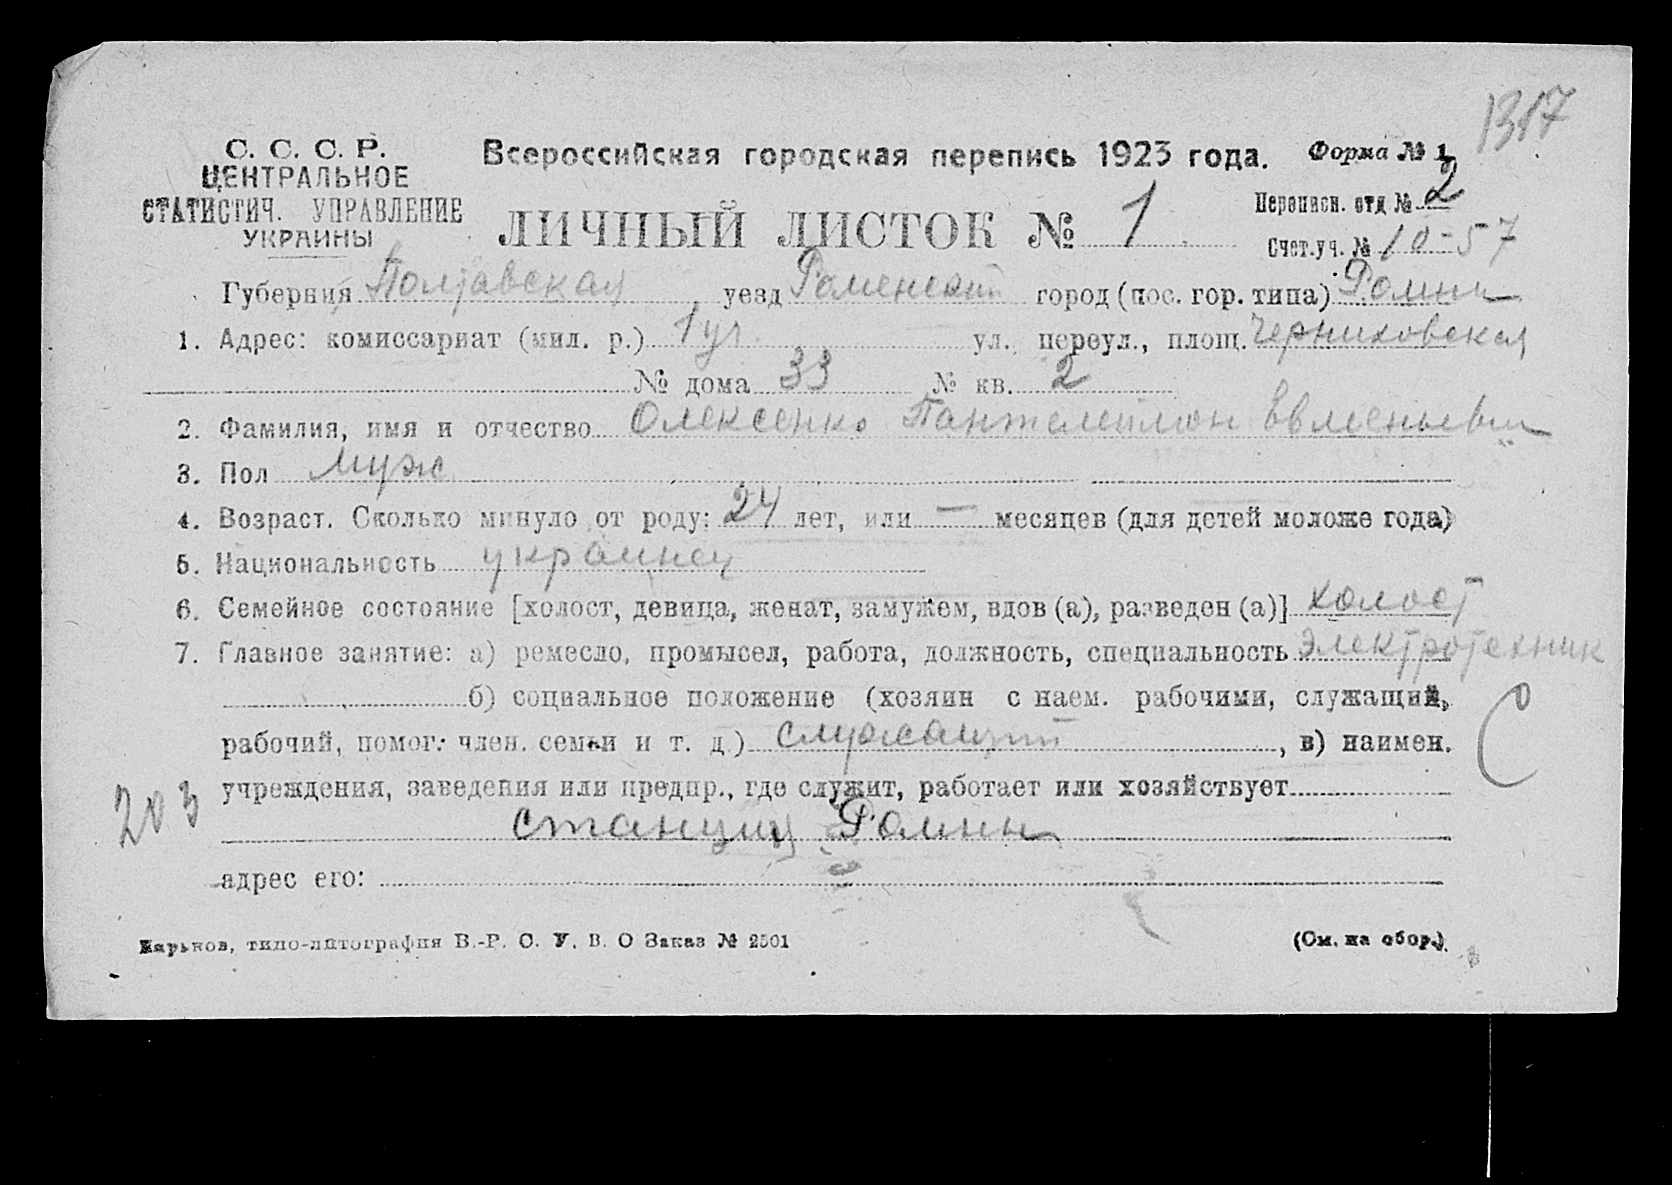 1317
С. С. С. Р. Всероссийская городская перепись 1923 года. Форма № 1
ЦЕНТРАЛЬНОЕ
СТАТИСТИЧ. УПРАВЛЕНИЕ
УКРАИНЫ
ЛИЧНЫЙ ЛИСТОК № 1
Переписн. отд № 2
Счет.уч. № 10-57
Губерния Полтавская уезд Роменский город (пос. гор. типа) Ромны
1. Адрес: комиссариат (мил. р.) 1 уч. ул., переул., площ. Черниховская
№ дома 33 № кв. 2
2. Фамилия, имя и отчество Олексенко Пантелеймон Евменьевич
3. Пол Муж
4. Возраст. Сколько минуло от роду: 24 лет, или — месяцев (для детей моложе года)
5. Национальность украинец
6. Семейное состояние [холост, девица, женат, замужем, вдов (а), разведен (а)] холост
7. Главное занятие: а) ремесло, промысел, работа, должность, специальность электротехник
б) социальное положение (хозяин с наем. рабочими, служащий,
рабочий, помог. член. семьи и т. д.) служащий, в) наимен.
учреждения, заведения или предпр., где служит, работает или хозяйствует
203
станция Ромны
адрес его:
Харьков, типо-литография В.-Р. С. У. В. О Заказ № 2501 (См. на обор.)